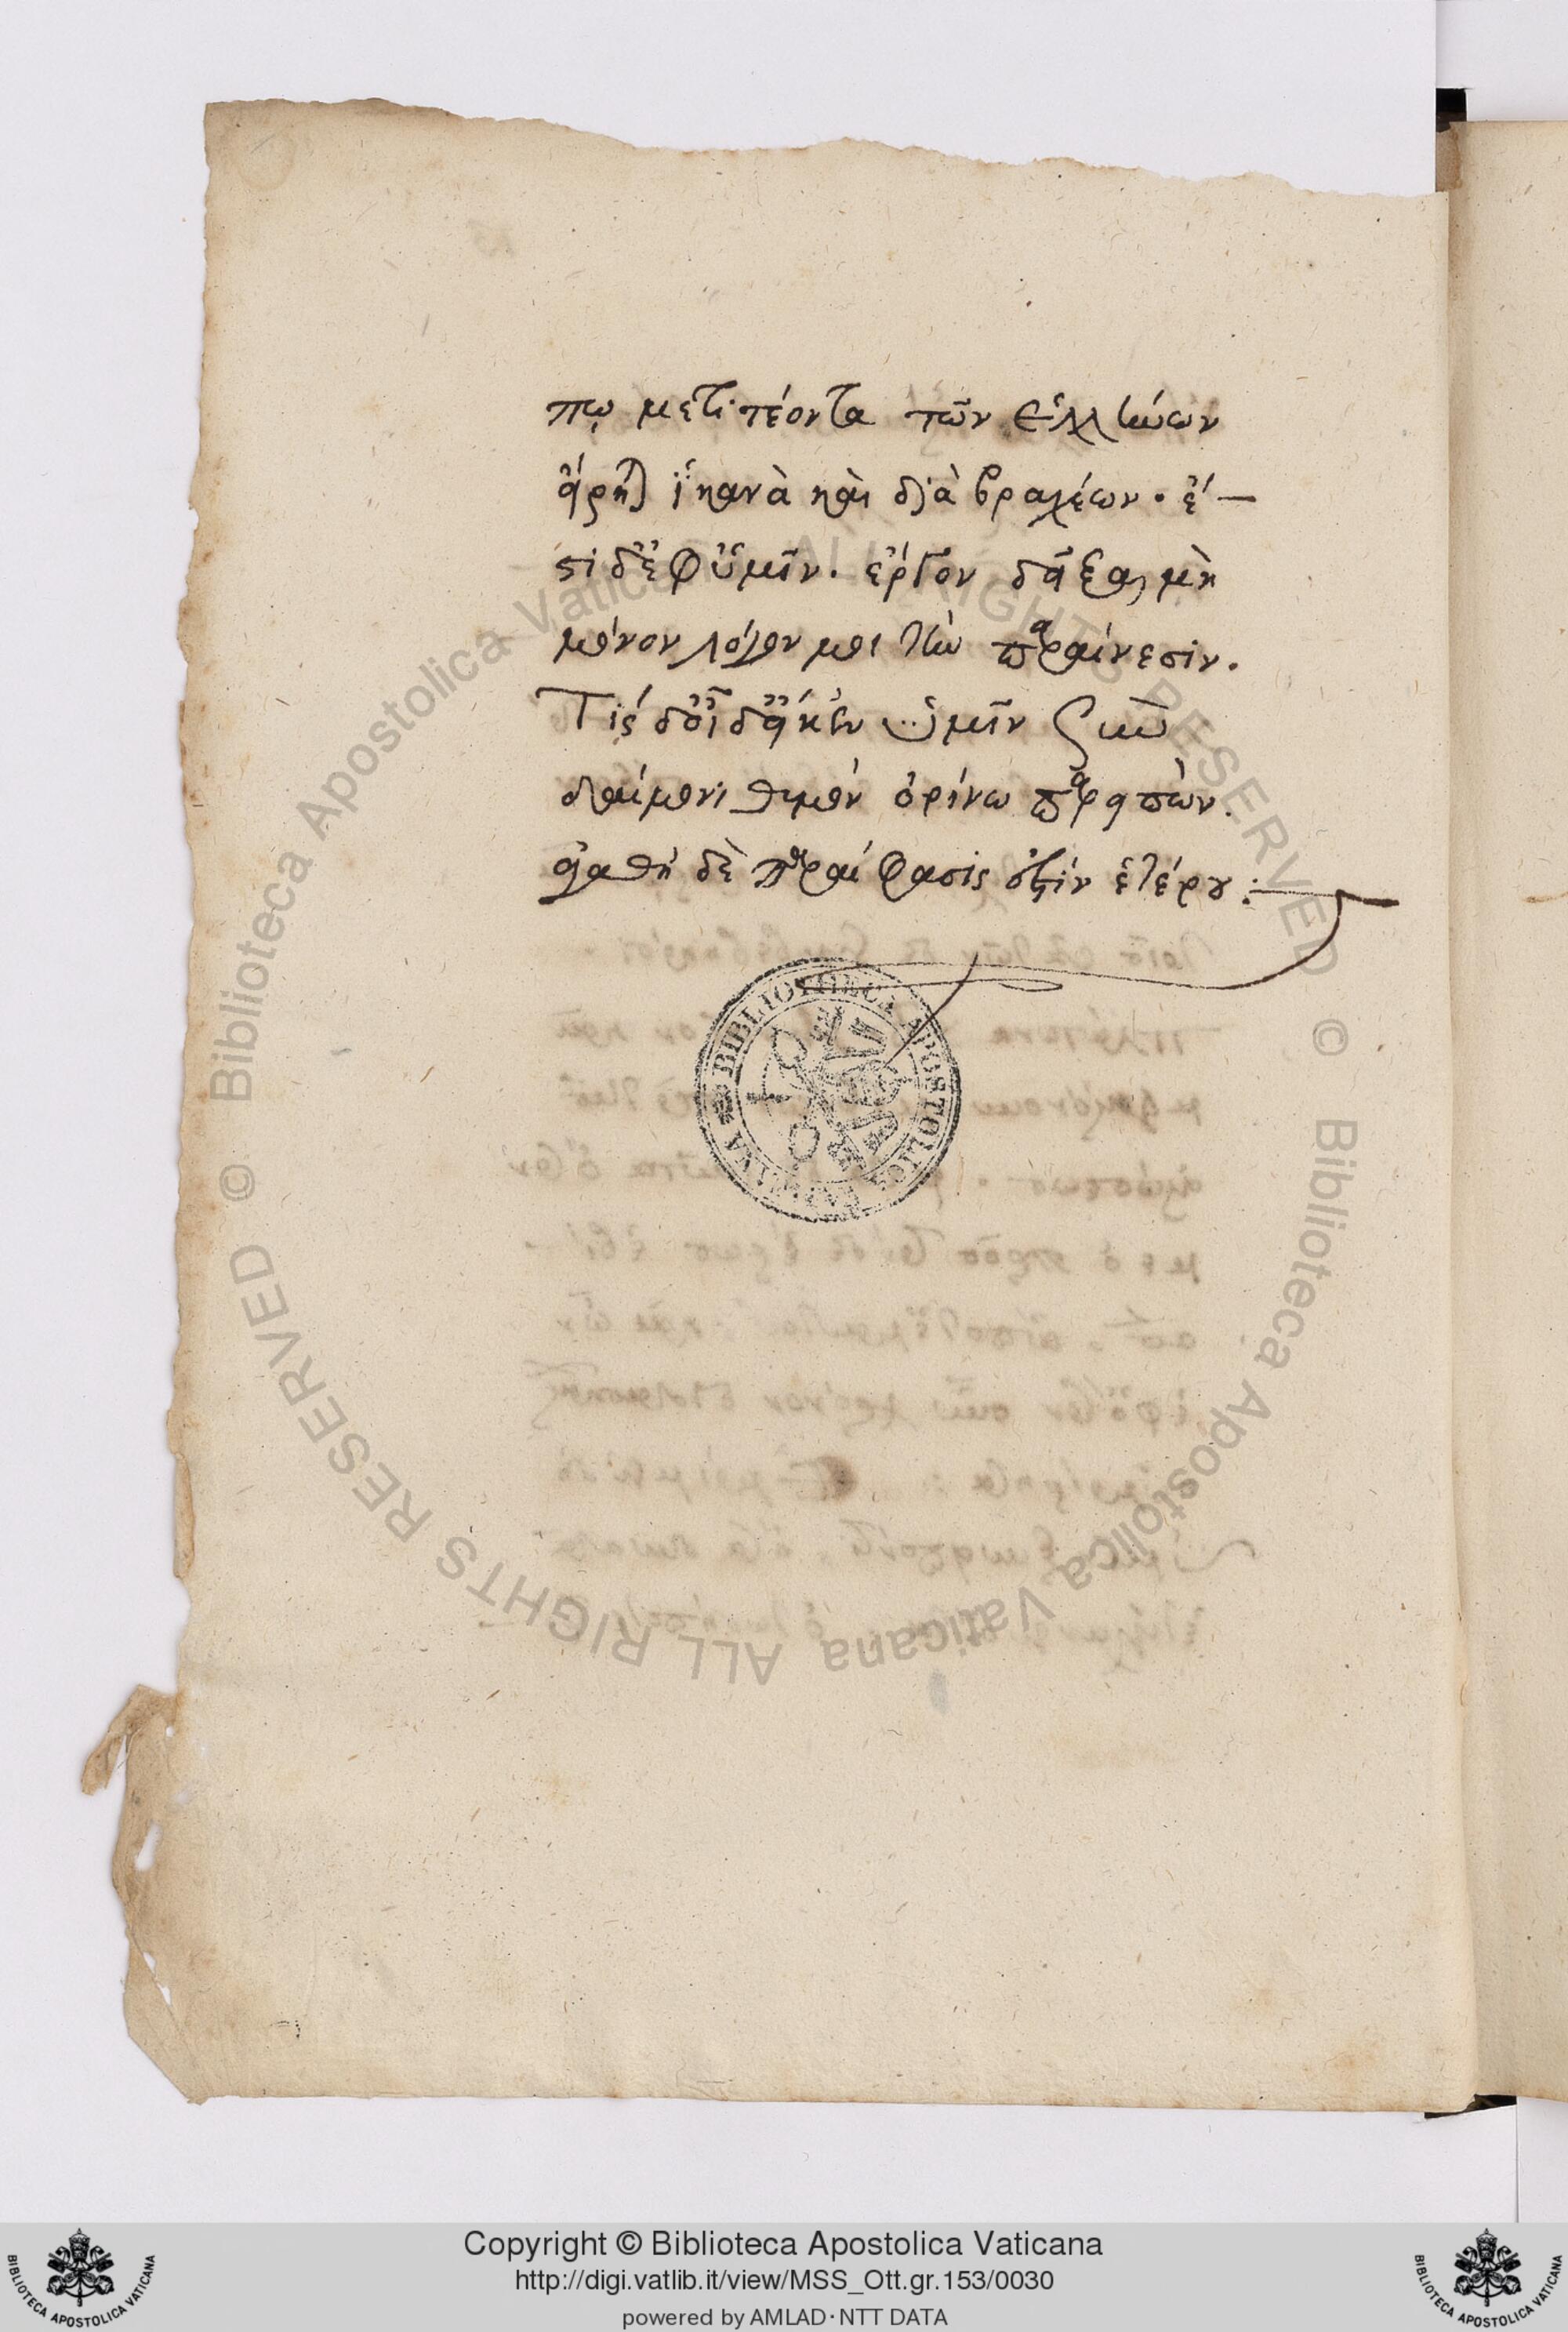 πω μετιτέοντα τῶν ἑλλήνων
εἴρηται ἱκανὰ καὶ διὰ βραχέων. ἔ-
στι δ' ἐφ' ὑμῖν. ἔργον δεῖξαι μὴ
μόνον λόγον μοι τὴν παραίνεσιν.
Τίς δ' οἶδ' εἴ κεν ὑμῖν σὺν
δαίμονι θυμὸν ὀρίνω παρειπών.
ἀγαθὴ δὲ παραίφασίς ἐστιν ἑτέρου:
BIBLIOTHECA APOSTOLICA VATICANA
© Biblioteca Apostolica Vaticana ALL RIGHTS RESERVED
© Biblioteca Apostolica Vaticana ALL RIGHTS RESERVED
Copyright © Biblioteca Apostolica Vaticana
http://digi.vatlib.it/view/MSS_Ott.gr.153/0030
powered by AMLAD·NTT DATA
BIBLIOTECA APOSTOLICA VATICANA
BIBLIOTECA APOSTOLICA VATICANA